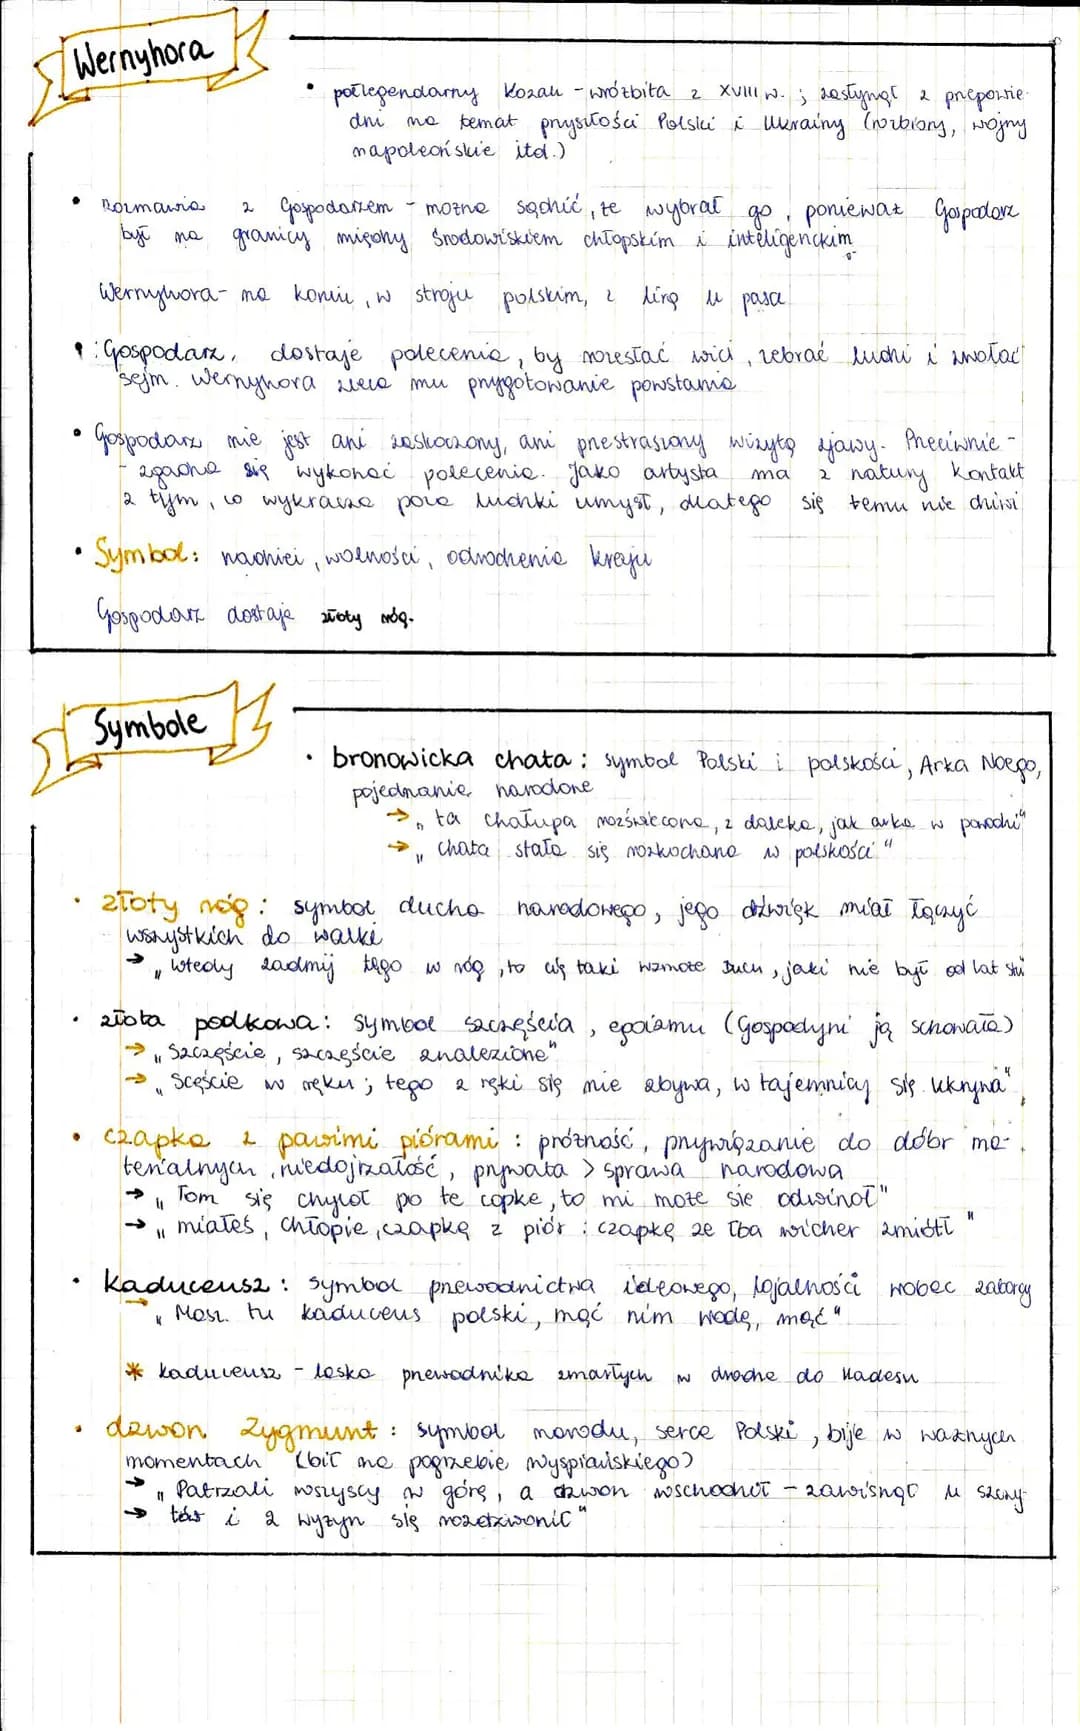 Wernyhora
• półlegendarny Kozak - wróżbita z XVIII w. ; zasłynął z przepowie-
dni na temat przyszłości Polski i Ukrainy (rozbiory, wojny
napoleońskie itd.)
• Rozmawia z Gospodarzem - można sądzić, że wybrał go, ponieważ Gospodarz
był na granicy między środowiskiem chłopskim i inteligenckim
Wernyhora - na koniu, w stroju polskim, z lirą u pasa
• Gospodarz dostaje polecenia, by rozesłać wici, zebrać ludzi i zwołać
sejm. Wernyhora zleca mu przygotowanie powstania
• Gospodarz nie jest ani zaskoczony, ani przestraszony wizytą zjawy. Przeciwnie -
- zgadza się wykonać polecenia. Jako artysta ma z natury kontakt
z tym, co wykracza poza ludzki umysł, dlatego się temu nie dziwi
• Symbol: nadziei, wolności, odrodzenia kraju
Gospodarz dostaje złoty róg.
Symbole
• bronowicka chata : symbol Polski i polskości, Arka Noego,
pojednanie narodowe
→ „ta chałupa rozświecona, z daleka, jak arka w powodzi"
→ „chata stała się rozkochana w polskości"
• złoty róg : symbol ducha narodowego, jego dźwięk miał łączyć
wszystkich do walki
→ „wtedy zadmij tego w róg, to cię taki wzmoże Duch, jaki nie był od lat stu
• złota podkowa: symbol szczęścia, egoizmu (Gospodyni ją schowała)
→ „Szczęście, szczęście znalezione"
→ „Scęście w ręku; tego z ręki się nie zbywa, w tajemnicy się ukrywa"
• czapka z pawimi piórami : próżność, przywiązanie do dóbr ma-
terialnych, niedojrzałość, prywata > sprawa narodowa
→ „Tom się chycół po te copke, to mi może sie odwinoł"
→ „miałeś, chłopie, czapkę z piór : czapkę ze łba wicher zmiótł"
• kaduceusz : symbol przewodnictwa ideowego, lojalności wobec zaborcy
→ „Masz tu kaduceus polski, mąć nim wodę, mąć"
* kaduceusz - laska przewodnika zmarłych w drodze do Hadesu
• dzwon Zygmunt : symbol narodu, serce Polski, bije w ważnych
momentach (bił na pogrzebie Wyspiańskiego)
→ „Patrzali wszyscy w górę, a dzwon wschodził - zawisnął u szczy-
→ tów i z wyżyn się rozedzwonił"